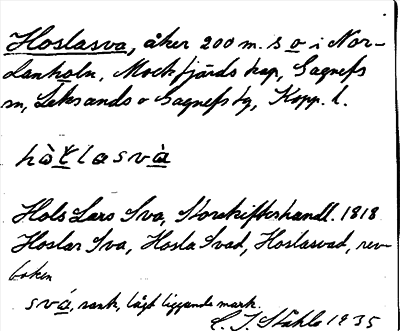 Hoslasva, åker 200 m. s o i Nor-
danholn, Mockfjärds kap, Gagnefs
sn, Leksands o Gagnefs tg, Kopp. l.
hòƚlasvà
Hols Lars Sva, Storskifteshandl. 1818
Hoslar Sva, Hosla Svad, Hoslasvad, rev-
boken
svá, sank, lågt liggande mark.
C. J. Ståhle 1935